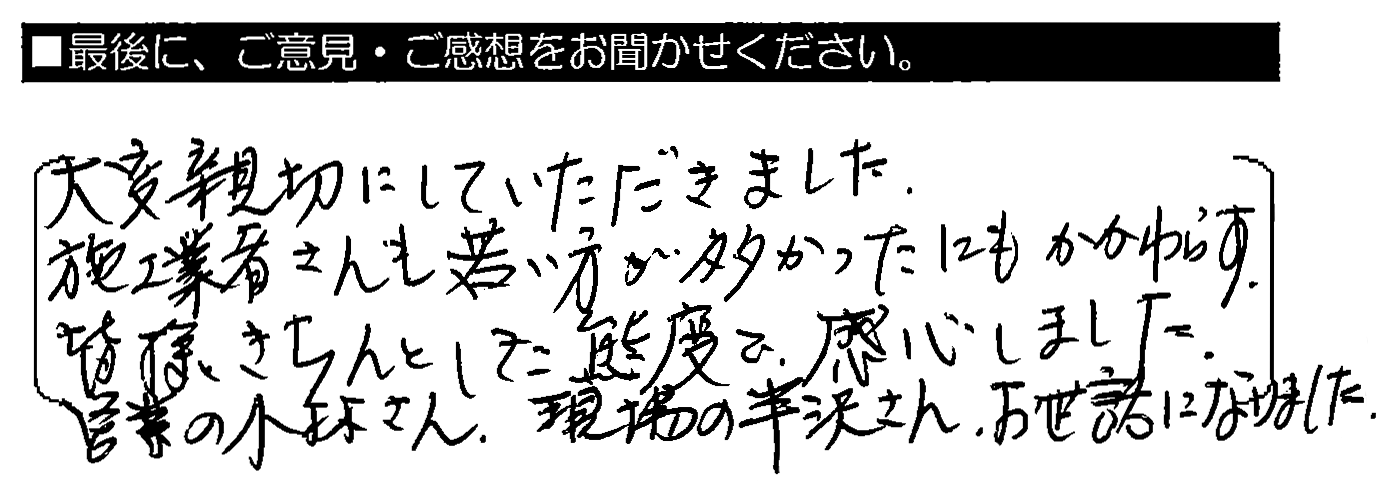 ■最後に、ご意見・ご感想をお聞かせください。
大変親切にしていただきました.
施工業者さんも若い方が多かったにもかかわらず.
皆様、きちんとした態度で、感心しました.
営業の小林さん. 現場の半沢さん、お世話になりました.